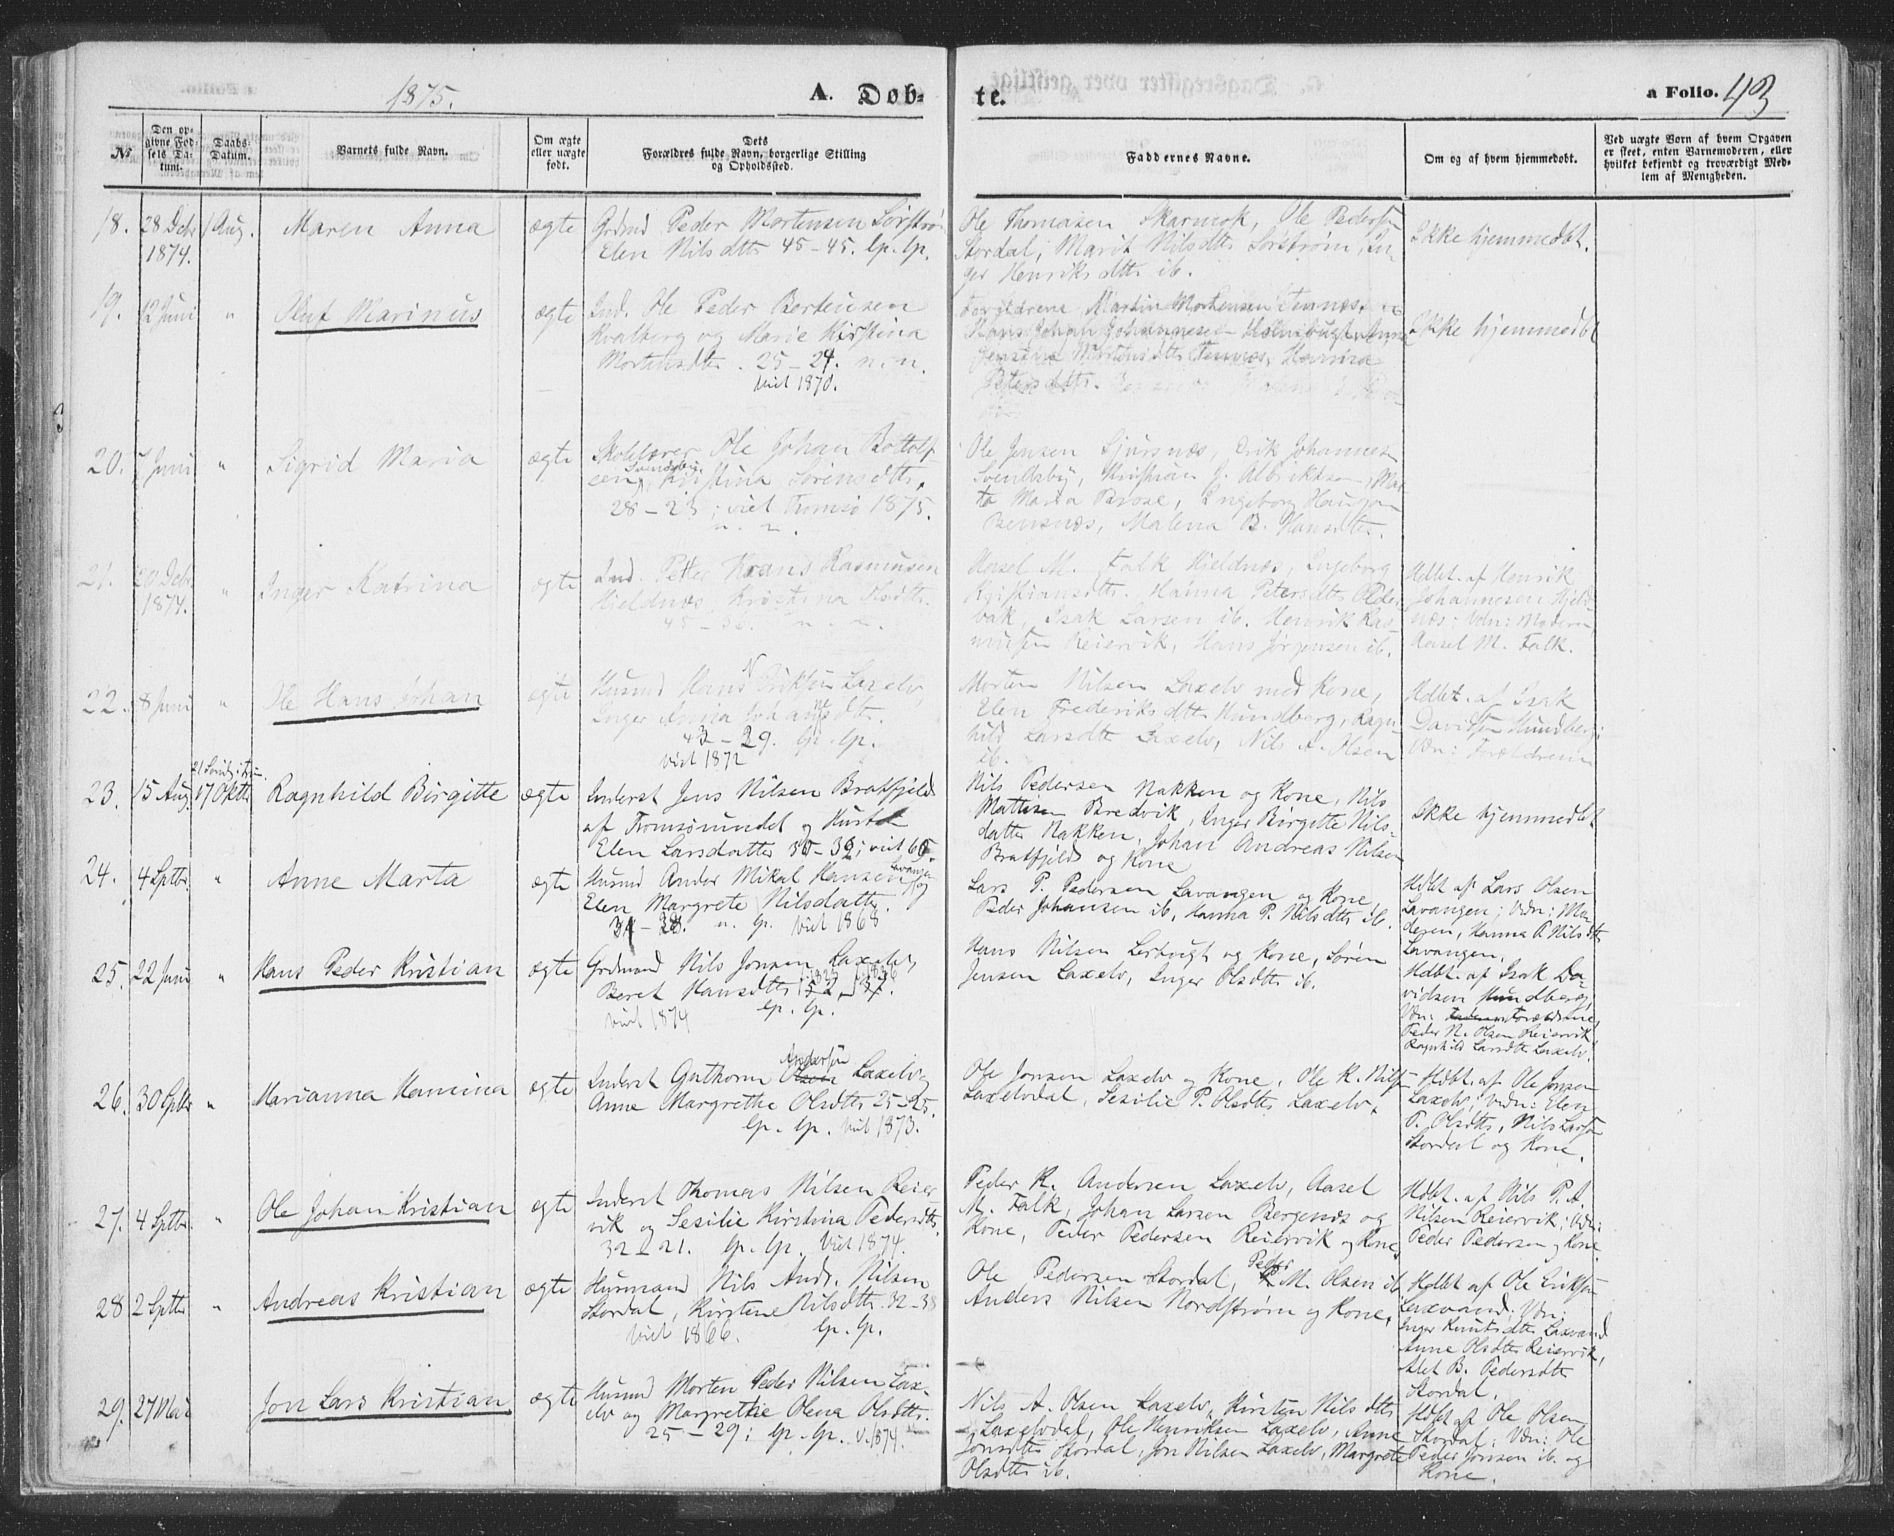 1875.
A. Døb-
te.
a Folio. 43
№
Den op-
givne Fød-
sels Da-
tum.
Daabs-
Datum.
Barnets fulde Navn.
Om ægte
eller uægte
født.
Dets
Forældres fulde Navn, borgerlige Stilling
og Opholdssted.
Faddernes Navne.
Om og af hvem hjemmedøbt.
Ved uægte Børn af hvem Opgaven
er skeet, enten Barnemoderen, eller
hvilket bekjendt og troværdigt Med-
lem af Menigheden.
18. 28 Debr 1874. 1 Aug. Maren Anna ægte
Grdmd Peder Mortensen Sørstrøm
Elen Nilsdtr 45-45. lp. lp.
Ole Thomasen Skarmok, Ole Peders.
Stordal, Marit Nilsdtr Sørstrøm, In-
ger Henriksdtr ib.
Ikke hjemmedbt.
19. 12 Juni " Oluf Marinus ægte
Ind. Ole Peder Berteusen
Kvalberg og Marie Kirstina
Mortensdtr. 25-24. n. n.
viet 1870.
Forældrene, Martin Mortensen Tennes,
Hans Johan Johannesen Holmbugt, Anne
Jensine Mortensdtr Tennes, Hansina
Petersdtr.
Ikke hjemmedbt
20. 7 Juni " Sigrid Maria ægte
Skolelærer Ole Johan Bottolf
sen Svendsby, Kristina Sørensdtr.
28-23; viet Tromsø 1875.
n. n.
Ole Jensen Sjursnæs, Erik Johannes
Svendsby, Kristian J. Albriktsen, Mar
ta Maria Brose, Ingeborg Hansen
Bensnæs, Malena B. Hansdtr.
21. 20 Debr 1874. " Inger Katrina ægte
Ind. Petter Hans Rasmusen
Hjeldnæs, Kristina Olsdtr.
45-36. n. n.
Aasel M. Falk Hjeldnæs, Ingeborg
Kristiansdtr. Hanna Petersdtr Older
bak, Isak Larsen ib. Henrik Ras-
musen Reiervik, Hans Jørgensen ib.
Hdbt. af Henrik
Johannesen Hjeld-
næs; Vdn: Moderen,
Aasel M. Falk.
22. 8 Juni " Ole Hans Johan ægte
Husmd Hans N Eriksen Laxelv,
Inger Anna Johannesdtr.
43-29. lp. lp.
viet 1872
Morten Nilsen Laxelv med Kone,
Elen Frederiksdtr Hundberg, Ragn-
hild Larsdtr Laxelv, Nils A. Olsen
ib.
Hdbt. af Isak
Davidsen Hundberg;
Vdn: Forældrene
23. 15 Aug. 21 Sønd. e. Trin. 17 Oktbr Ragnhild Birgitte ægte
Inderst Jens Nilsen Bratfjeld
af Tromsøsundet og Hustru
Elen Larsdatter 35-39; viet 65.
Nils Pedersen Nakken og Kone, Nils
Mattisen Bredvik, Inger Birgitte Nils-
datter Nakken, Johan Andreas Nilsen
Bratfjeld og Kone
Ikke hjemmedbt
24. 4 Sptbr " Anne Marta ægte
Husmd Ander Mikal Hansen Lavangen og
Elen Margrete Nilsdatter.
34-28. n. lp. viet 1868
Lars P. Pedersen Lavangen og Kone,
Peder Johansen ib, Hanna P. Nilsdtr ib.
Hdbt af Lars Olsen
Lavangen; Vdn: Mo-
deren, Hanna P. Nilsdtr
Lavangen.
25. 22 Juni " Hans Peder Kristian ægte
Grdmand Nils Jonsen Laxelv,
Beret Hansdtr 52, 37.
viet 1874 lp. lp.
Hans Nilsen Lerbugt og Kone, Søren
Jensen Laxelv, Inger Olsdtr ib.
Hdbt. af Isak Da-
vidsen Hundberg,
Vdn: Forældrene,
Peder N. Olsen Reiervik
Ragnhild Larsdtr Laxelv.
26. 30 Sptbr " Marianna Hansina ægte
Inderst Guthorm Olsen Andersen Laxelv og
Anne Margrethe Olsdtr 25-25.
lp. lp. viet 1873.
Ole Jonsen Laxelv og Kone, Ole K. Nils-
Laxelvdal, Sesilie P. Olsdtr Laxelv.
Hdbt. af Ole Jonsen
Laxelv; Vdn: Elen
P. Olsdtr, Nils Larsen
Stordal og Kone.
27. 4 Sptbr " Ole Johan Kristian ægte
Inderst Thomas Nilsen Reier
vik og Sesilie Kirstina Pedersdtr
32-21. lp. lp. viet 1874.
Peder K. Andersen Laxelv, Aasel
M. Falk, Johan Larsen Bergenæs og
Kone, Peder Pedersen Reiervik og Kone.
Hdbt. af Nils P. A.
Nilsen Reiervik; Vdn:
Peder Pedersen og Kone.
28 2 Sptbr " Andreas Kristian ægte
Husmand Nils Andr. Nilsen
Stordal, Kirstine Nilsdtr. 32-38
viet 1866. lp. lp.
Ole Pedersen Stordal, Peder M. Olsen ib.
Anders Nilsen Nordstrøm og Kone.
Hdbt af Ole Eriksen
Laxvand; Vdn:
Inger Knutsdtr Laxvand
Anne Olsdtr Reiervik,
Alet B. Pedersdtr
Stordal.
29. 27 Mai Jon Lars Kristian ægte
Husmd Morten Peder Nilsen Lax-
elv og Margrethe Olena Olsdtr.
25-29; lp. lp. v. 1874.
Nils A. Olsen Laxelv, Kirsten Nilsdtr
Laxelvdal, Ole Henriksen Laxelv, Anne
Jonsdtr Stordal, Jon Nilsen Laxelv, Margrete
Olsdtr ib.
Hdbt af Ole Olsen
Stordal; Vdn: Ole
Peder Jonsen ib. og
Kone.